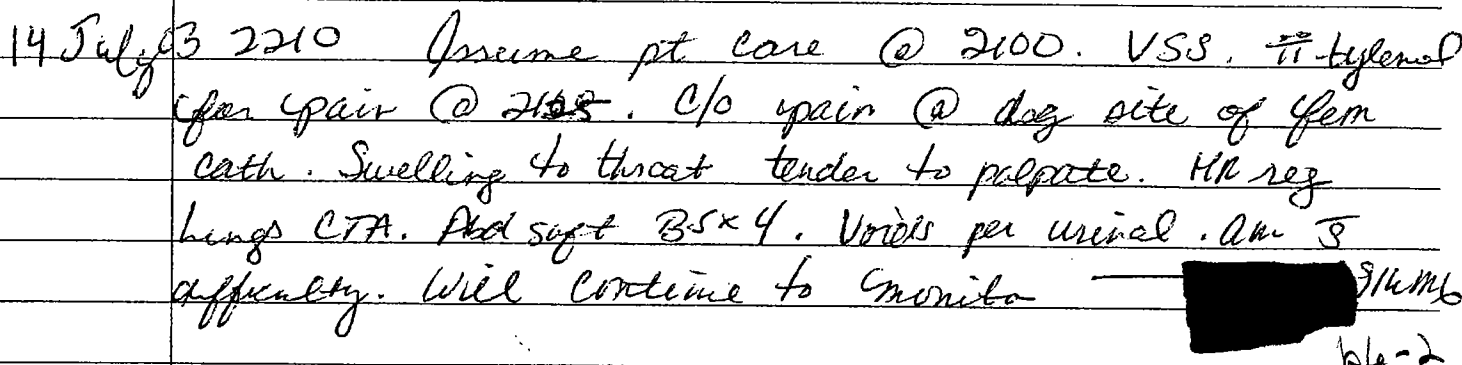 14 July 03 2210 Assume pt care @ 2100. VSS. ii tylenol
for pain @ . C/o pain @ dsg site of fem
cath. Swelling to throat tender to palpate. HR reg
Lungs CTA. Abd soft BS x 4. Voids per urinal. am s̄
difficulty. Will continue to monitor
b(6)-2